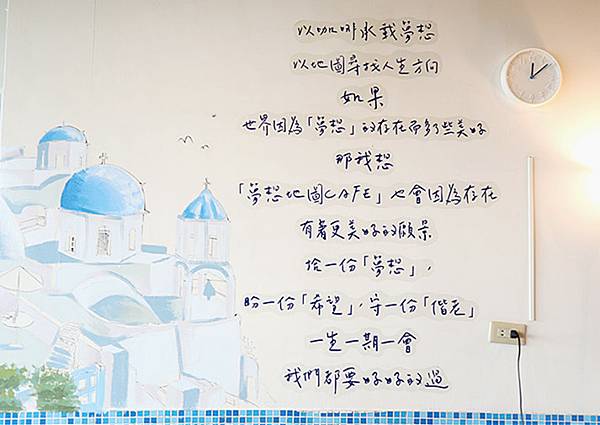 以咖啡水載夢想
以地圖尋找人生方向
如果
世界因為「夢想」的存在而多了些美好
那我想
「夢想地圖CAFE」也會因為存在
有著更美好的願景
拾一份「夢想」，
盼一份「希望」，守一份「偕老」
一生一期一會
我們都要好好的過